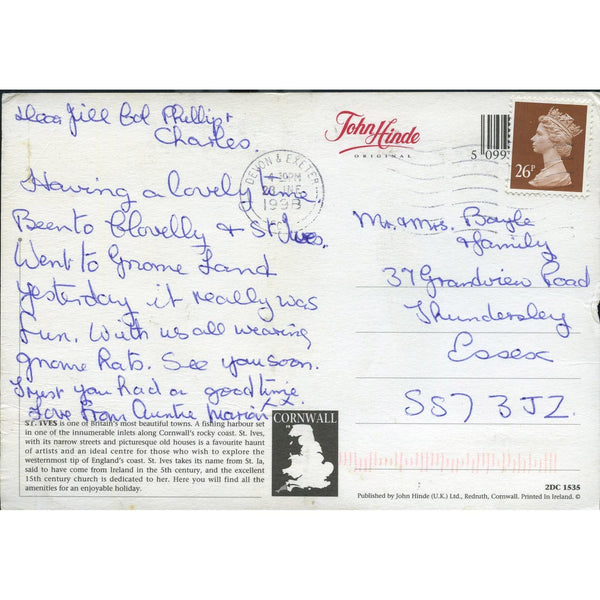 Dear Jill Bob Phillip +
Charles.
Having a lovely time
Been to Clovelly & St Ives.
Went to Gnome Land
Yesterday it really was
fun. With us all wearing
gnome hats. See you soon.
Trust you had a good time.
Love from Auntie Marion xx
John Hinde
ORIGINAL
5 099
26P
DEVON & EXETER
4 30PM
28 JNE
1998
Mr. & Mrs. Bayle
& family
37 Grandview Road
Thundersley
Essex
SS7 3JZ.
ST. IVES is one of Britain's most beautiful towns. A fishing harbour set
in one of the innumerable inlets along Cornwall's rocky coast. St. Ives,
with its narrow streets and picturesque old houses is a favourite haunt
of artists and an ideal centre for those who wish to explore the
westernmost tip of England's coast. St. Ives takes its name from St. Ia,
said to have come from Ireland in the 5th century, and the excellent
15th century church is dedicated to her. Here you will find all the
amenities for an enjoyable holiday.
CORNWALL
2DC 1535
Published by John Hinde (U.K.) Ltd., Redruth, Cornwall. Printed In Ireland. ©